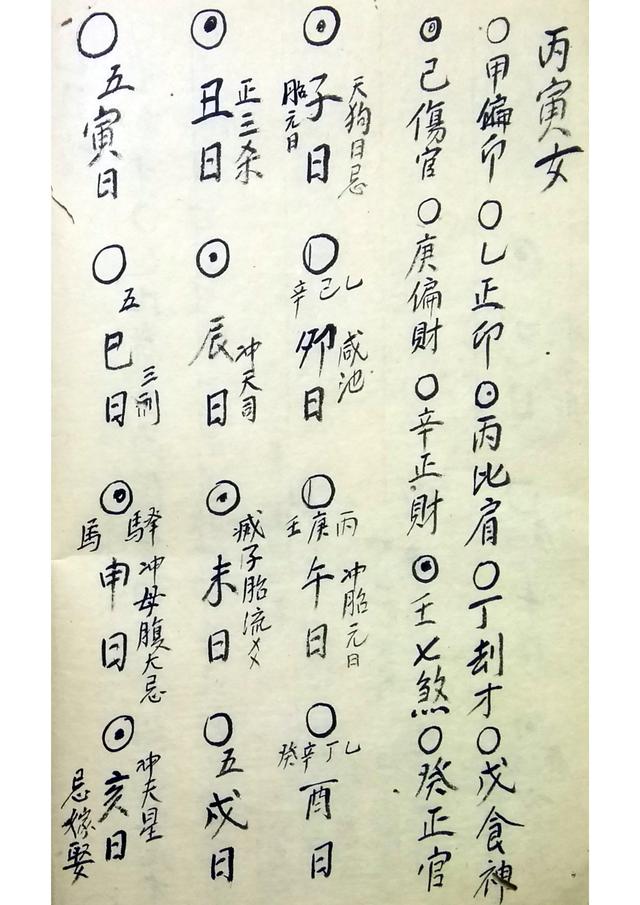 丙寅女
○甲偏印○乙正印⊙丙比肩○丁刦才○戊食神
⊙己傷官○庚偏財○辛正財⊙壬七煞○癸正官
⊙子日 天狗日忌 胎元日
○卯日 乙己辛 咸池
○午日 丙庚壬 冲胎元日
○酉日 乙丁辛癸
⊙丑日 正三杀
⊙辰日 冲天司
⊙未日 流
○五戌日
○五寅日
○五巳日 三刑
⊙申日 驛馬 冲母腹大忌
⊙亥日 冲夫星 忌嫁娶